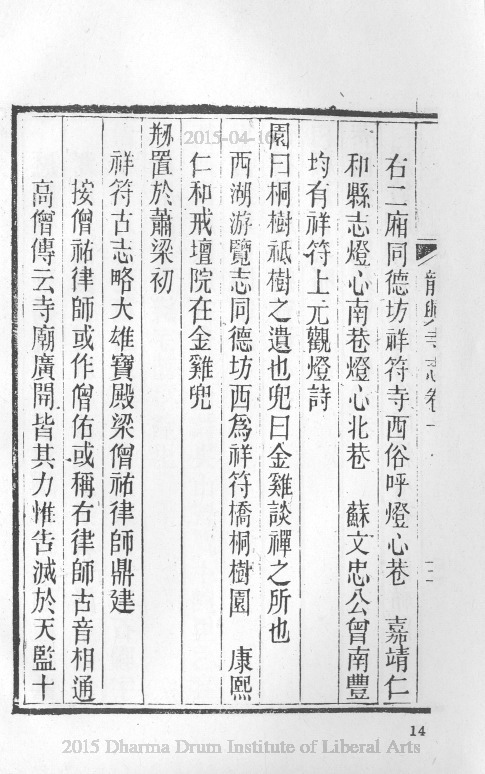 龍興寺志卷一
右二廂同德坊祥符寺西俗呼燈心巷 嘉靖仁
和縣志燈心南巷燈心北巷 蘇文忠公曾南豐
均有祥符上元觀燈詩
園曰桐樹祗樹之遺也兜曰金雞談禪之所也
西湖游覽志同德坊西爲祥符橋桐樹園 康熙
仁和戒壇院在金雞兜
剏置於蕭梁初
祥符古志略大雄寶殿梁僧祐律師鼎建
按僧祐律師或作僧佑或稱右律師古音相通
高僧傳云寺廟廣開皆其力惟告滅於天監十
2015-04-16
14
2015 Dharma Drum Institute of Liberal Arts